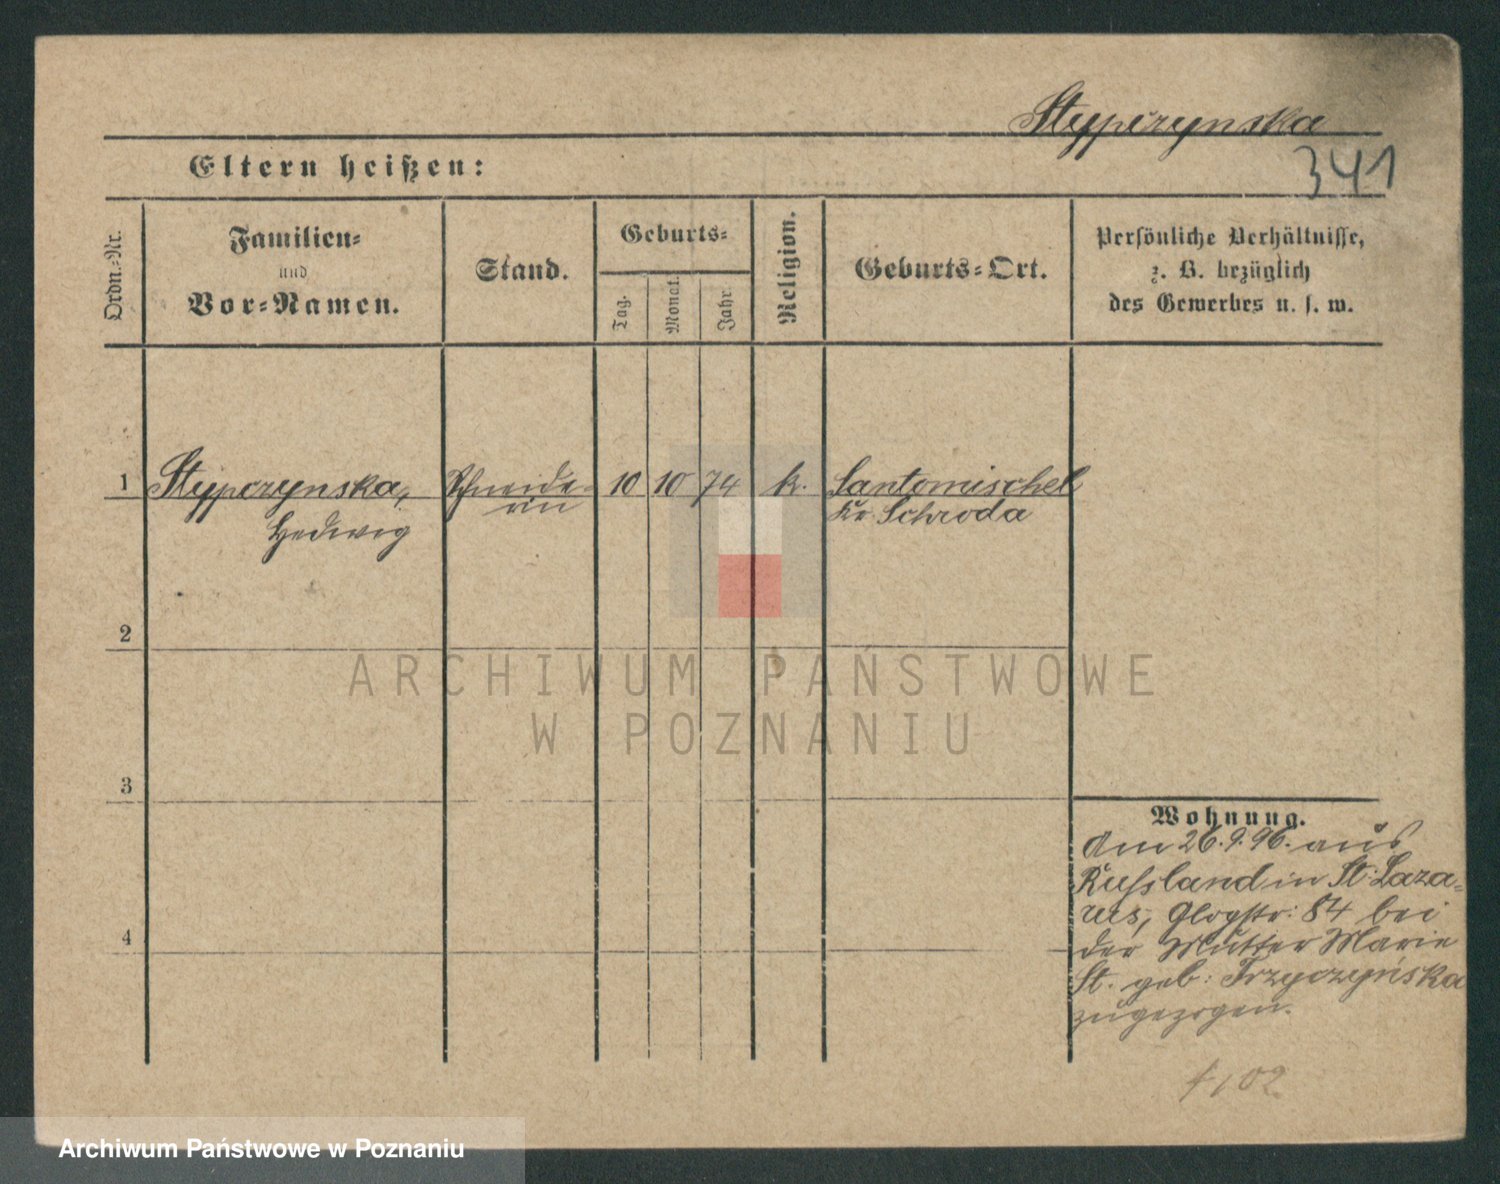 Stypczynska
341
Eltern heißen:
Ordn.-Nr.
Familien-
und
Vor-Namen.
Stand.
Geburts-
Tag.
Monat.
Jahr.
Religion.
Geburts-Ort.
Persönliche Verhältnisse,
z. B. bezüglich
des Gewerbes u. s. w.
1 Stypczynska, Schneide- 10 10 74 k. Santomischel
Hedwig rin Kr. Schroda
2
ARCHIWUM PAŃSTWOWE
W POZNANIU
3
Wohnung.
Am 26.9.96. aus
Russland in St. Laza-
rus, Glogstr: 84 bei
4
der Mutter Marie
St. geb: Trzyczyńska
zugezogen.
102
Archiwum Państwowe w Poznaniu